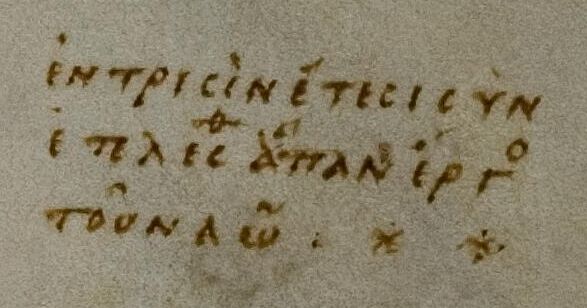 ἐν τρισὶν ἔτεσι σὺν
ἐπλεσθ ἅπαν ἔργο
τοῦ ναῶ : ※ ※